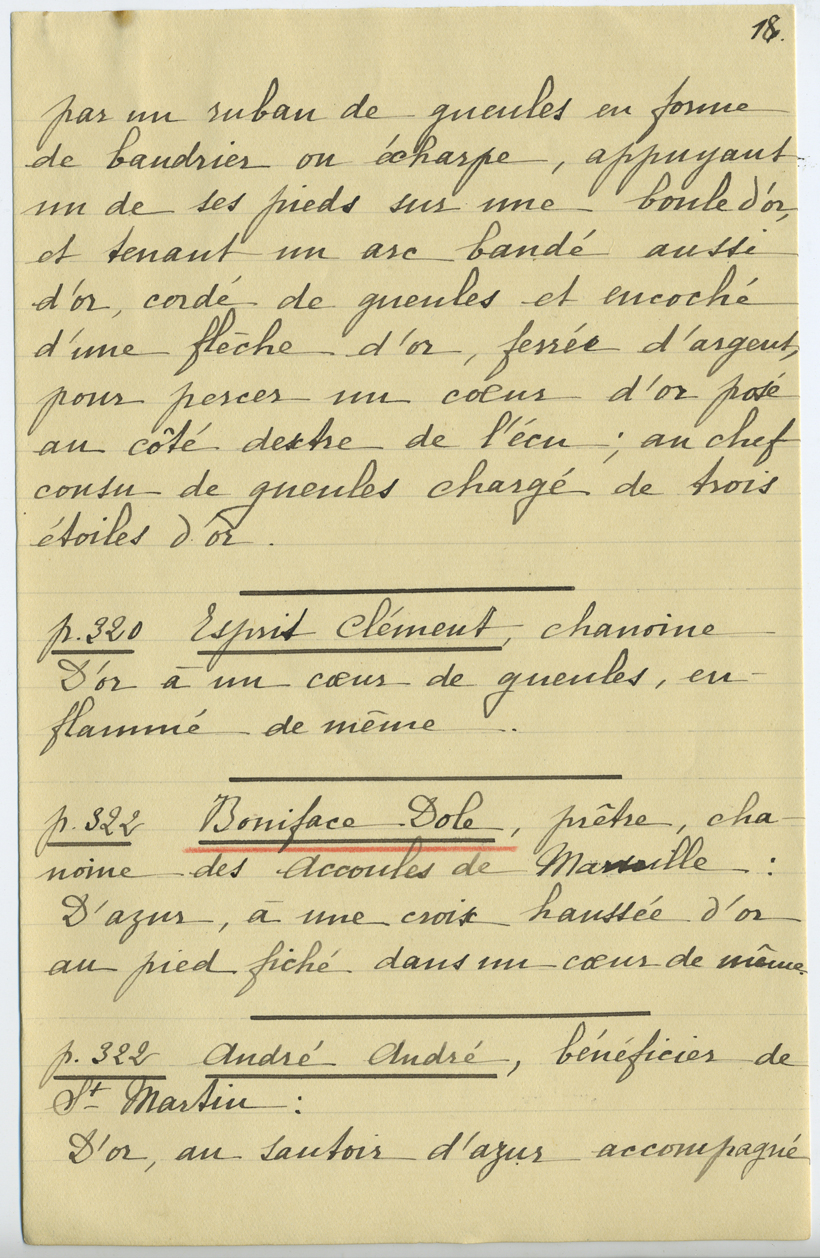 18.
par un ruban de gueules en forme
de baudrier ou écharpe, appuyant
un de ses pieds sur une boule d'or,
et tenant un arc bandé aussi
d'or, cordé de gueules et encoché
d'une flèche d'or, ferrée d'argent,
pour percer un cœur d'or posé
au côté dextre de l'écu ; au chef
cousu de gueules chargé de trois
étoiles d'or.
p.320 Esprit Clément, chanoine
D'or à un cœur de gueules, en-
flammé de même.
p.322 Boniface Dole, prêtre, cha-
noine des Accoules de Marseille :
D'azur, à une croix haussée d'or
au pied fiché dans un cœur de même.
p.322 André André, bénéficier de
St Martin :
D'or, au sautoir d'azur accompagné